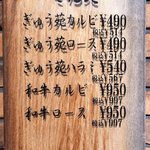 ぎゅう苑カルビ ¥490
税込¥514
ぎゅう苑ロース ¥490
税込¥514
ぎゅう苑ハラミ ¥540
税込¥567
和牛カルビ ¥950
税込¥997
和牛ロース ¥950
税込¥997